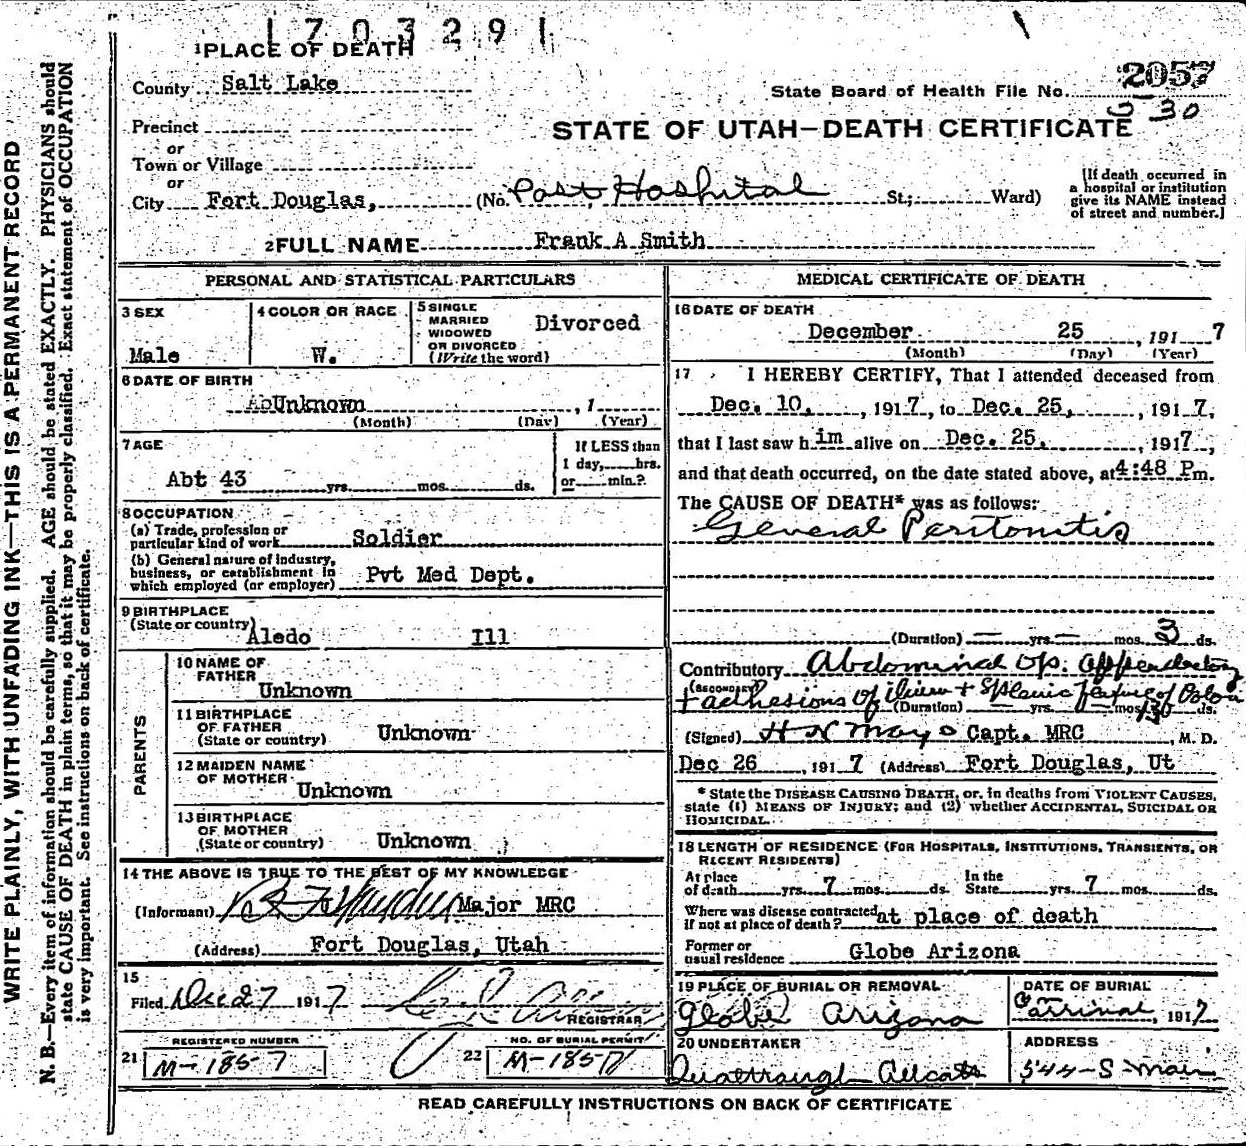 170329
1 PLACE OF DEATH
County Salt Lake
State Board of Health File No. 2057
330
Precinct
or
Town or Village
or
STATE OF UTAH—DEATH CERTIFICATE
City Fort Douglas, (No. Post Hospital St.; Ward)
[If death occurred in
a hospital or institution
give its NAME instead
of street and number.]
2 FULL NAME Frank A Smith
PERSONAL AND STATISTICAL PARTICULARS
3 SEX
Male
4 COLOR OR RACE
W.
5 SINGLE
MARRIED
WIDOWED
OR DIVORCED
(Write the word)
Divorced
6 DATE OF BIRTH
Unknown , 1
(Month) (Day) (Year)
7 AGE
Abt 43 yrs. mos. ds.
If LESS than
1 day, hrs.
or min.?
8 OCCUPATION
(a) Trade, profession or
particular kind of work Soldier
(b) General nature of industry,
business, or establishment in
which employed (or employer) Pvt Med Dept.
9 BIRTHPLACE
(State or country) Aledo Ill
PARENTS
10 NAME OF
FATHER
Unknown
11 BIRTHPLACE
OF FATHER
(State or country) Unknown
12 MAIDEN NAME
OF MOTHER
Unknown
13 BIRTHPLACE
OF MOTHER
(State or country) Unknown
14 THE ABOVE IS TRUE TO THE BEST OF MY KNOWLEDGE
(Informant) Major MRC
(Address) Fort Douglas, Utah
15
Filed Dec 27 1917
REGISTRAR
REGISTERED NUMBER
21 M-1857
NO. OF BURIAL PERMIT
22 M-1857
MEDICAL CERTIFICATE OF DEATH
16 DATE OF DEATH
December 25 , 191 7
(Month) (Day) (Year)
17 I HEREBY CERTIFY, That I attended deceased from
Dec. 10, , 1917, to Dec. 25, , 1917,
that I last saw him alive on Dec. 25, , 1917,
and that death occurred, on the date stated above, at 4:48 Pm.
The CAUSE OF DEATH* was as follows:
General Peritonitis
(Duration) — yrs. — mos. 3 ds.
Contributory Abdominal op. appendectomy
(SECONDARY)
+ adhesions of ilium + splenic flexure of Colon
(Duration) yrs. mos. ds.
(Signed) H N Mayo Capt. MRC , M. D.
Dec 26 , 191 7 (Address) Fort Douglas, Ut
* State the DISEASE CAUSING DEATH, or, in deaths from VIOLENT CAUSES,
state (1) MEANS OF INJURY; and (2) whether ACCIDENTAL, SUICIDAL OR
HOMICIDAL.
18 LENGTH OF RESIDENCE (FOR HOSPITALS, INSTITUTIONS, TRANSIENTS, OR
RECENT RESIDENTS)
At place
of death yrs. 7 mos. ds.
In the
State yrs. 7 mos. ds.
Where was disease contracted
if not at place of death? at place of death
Former or
usual residence Globe Arizona
19 PLACE OF BURIAL OR REMOVAL
Globe Arizona
DATE OF BURIAL
arrival , 1917
20 UNDERTAKER
ADDRESS
544 - S - Main
READ CAREFULLY INSTRUCTIONS ON BACK OF CERTIFICATE
WRITE PLAINLY, WITH UNFADING INK—THIS IS A PERMANENT RECORD
N. B.—Every item of information should be carefully supplied. AGE should be stated EXACTLY. PHYSICIANS should
state CAUSE OF DEATH in plain terms, so that it may be properly classified. Exact statement of OCCUPATION
is very important. See instructions on back of certificate.